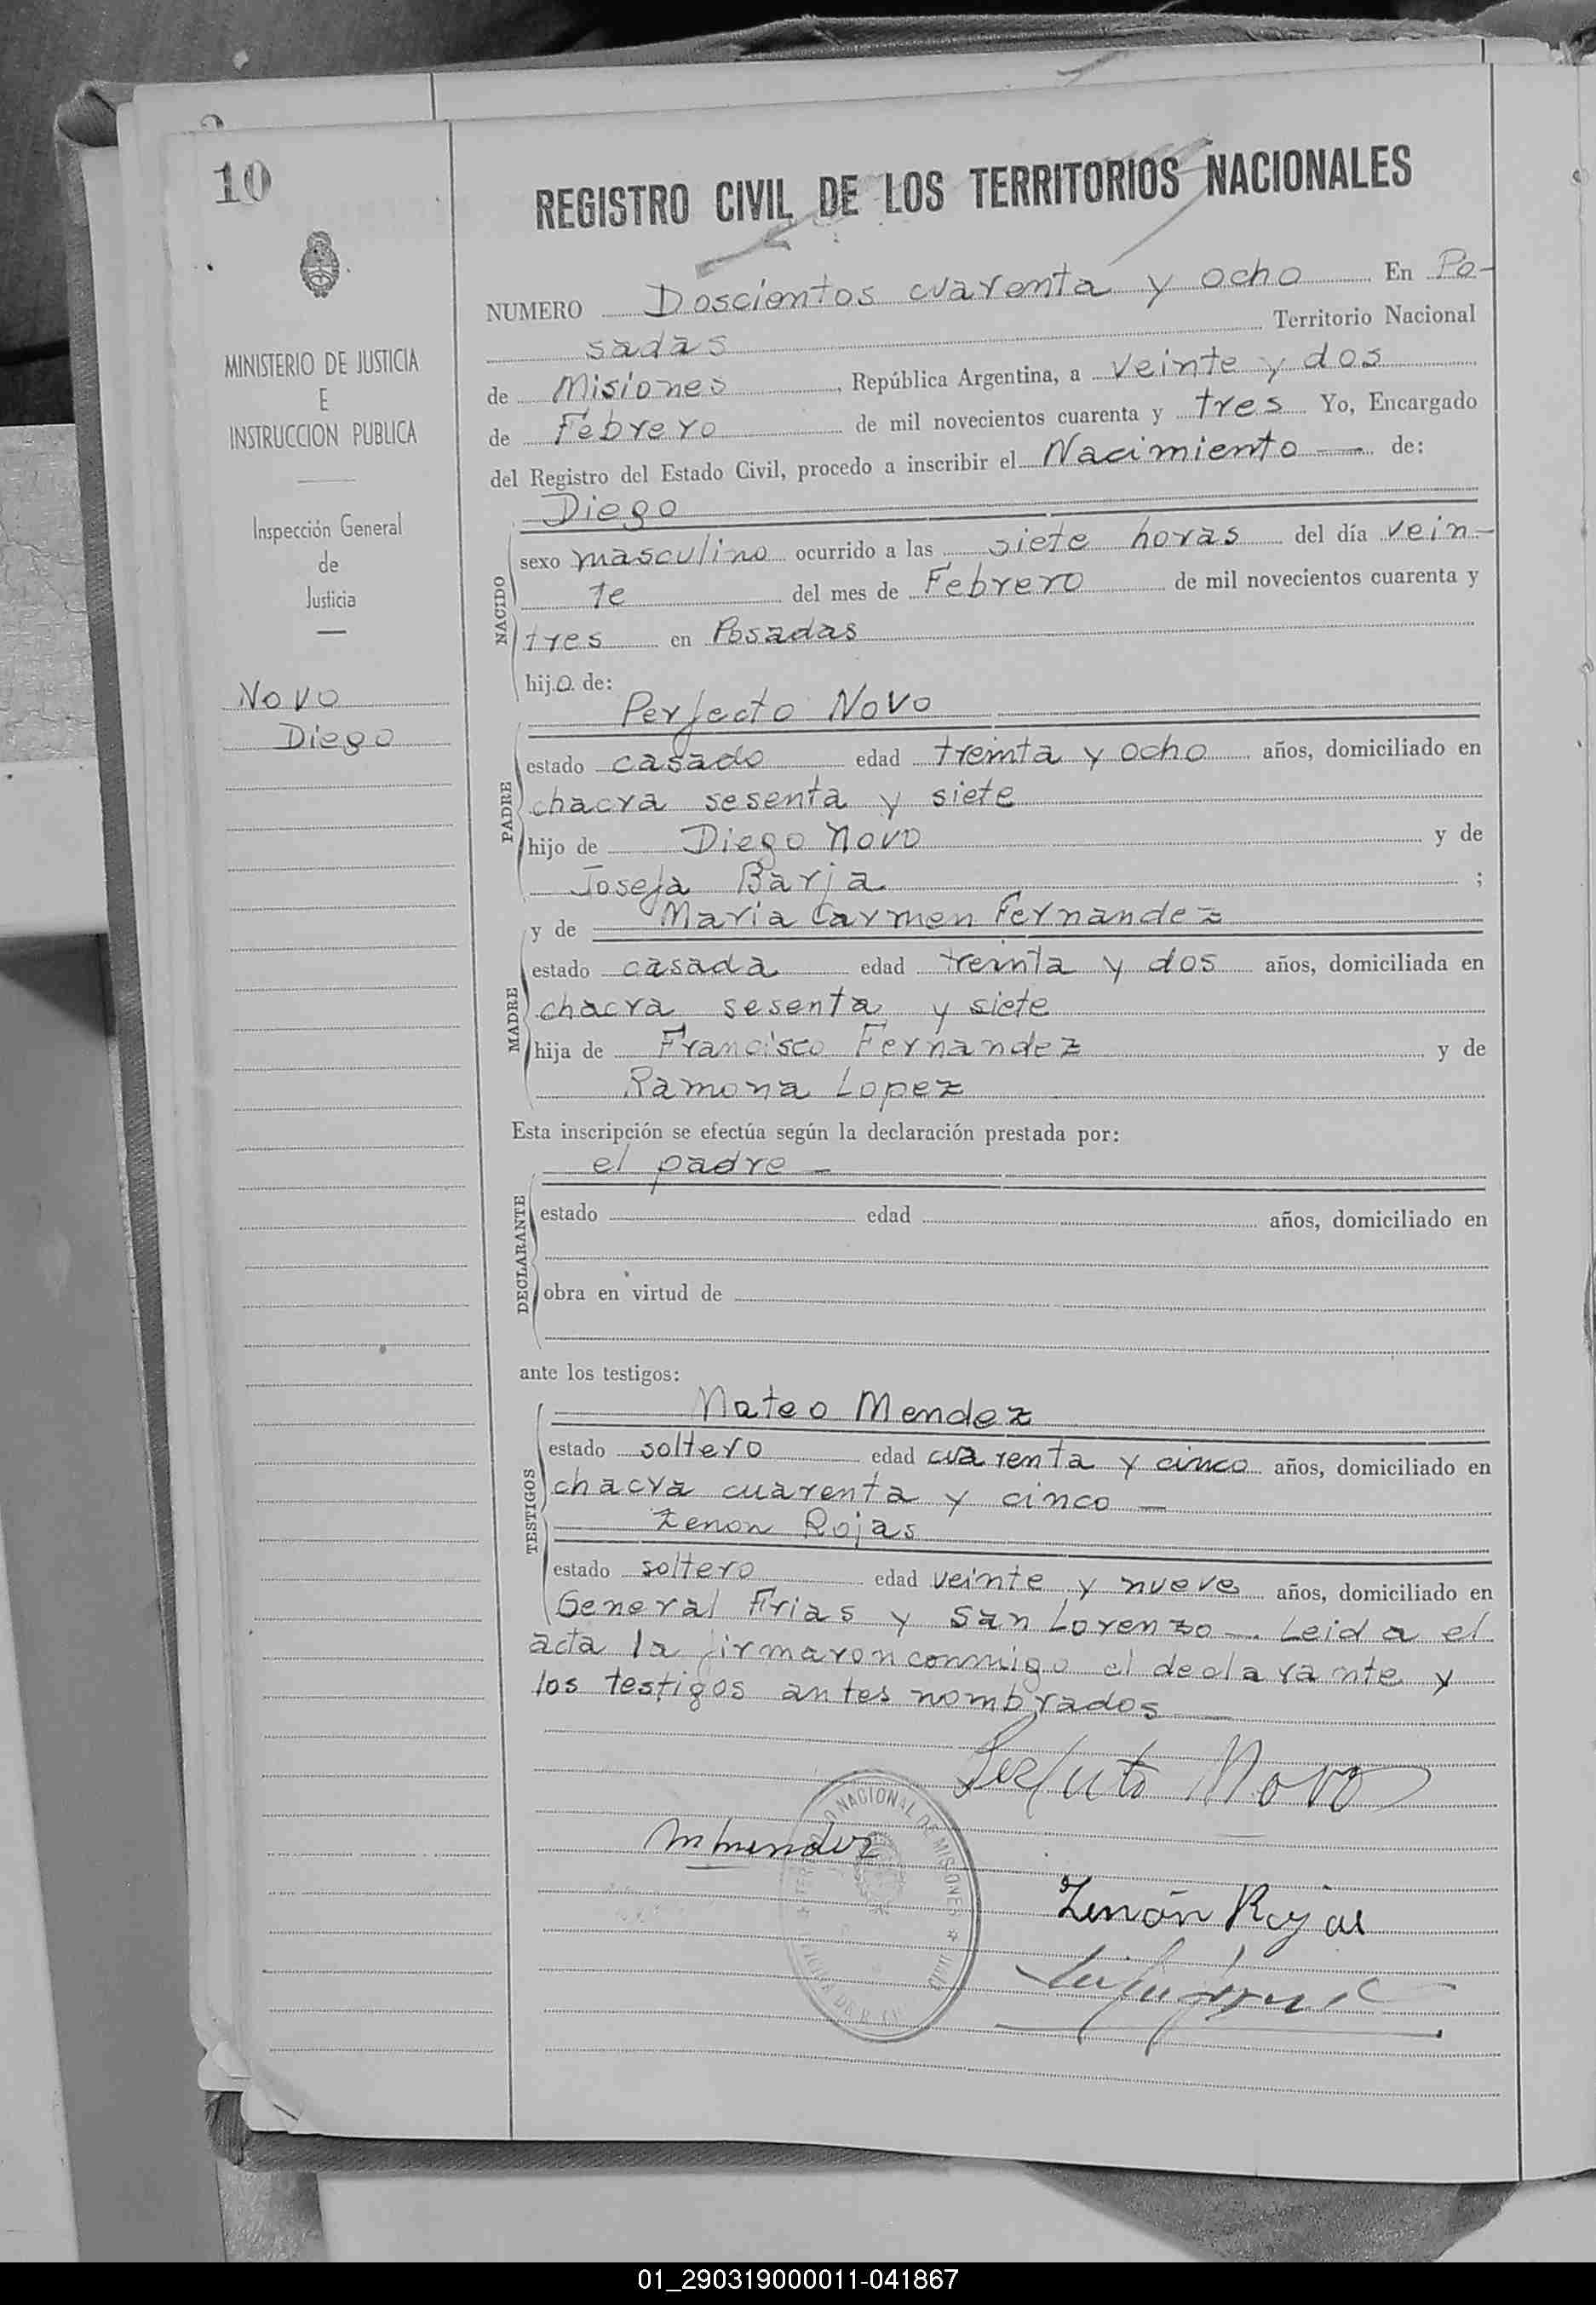 10
MINISTERIO DE JUSTICIA
E
INSTRUCCION PUBLICA
Inspección General
de
Justicia
Novo
Diego
REGISTRO CIVIL DE LOS TERRITORIOS NACIONALES
NUMERO Doscientos cuarenta y ocho En Po-
sadas Territorio Nacional
de Misiones, República Argentina, a veinte y dos
de Febrero de mil novecientos cuarenta y tres Yo, Encargado
del Registro del Estado Civil, procedo a inscribir el Nacimiento — de:
Diego
NACIDO
sexo masculino ocurrido a las siete horas del día vein-
te del mes de Febrero de mil novecientos cuarenta y
tres en Posadas
hijo de:
Perfecto Novo
PADRE
estado casado edad treinta y ocho años, domiciliado en
chacra sesenta y siete
hijo de Diego Novo y de
Josefa Barja ;
y de Maria Carmen Fernandez
MADRE
estado casada edad treinta y dos años, domiciliada en
chacra sesenta y siete
hija de Francisco Fernandez y de
Ramona Lopez
Esta inscripción se efectúa según la declaración prestada por:
el padre —
DECLARANTE
estado edad años, domiciliado en
obra en virtud de
ante los testigos:
Mateo Mendez
TESTIGOS
estado soltero edad cuarenta y cinco años, domiciliado en
chacra cuarenta y cinco —
Zenon Rojas
estado soltero edad veinte y nueve años, domiciliado en
General Frias y San Lorenzo —. Leid a el
acta la firmaron conmigo el declarante y
los testigos antes nombrados —
Perfecto Novo
M Mendez
NACIONAL DE MISIONES
Zenón Rojas
01_290319000011-041867